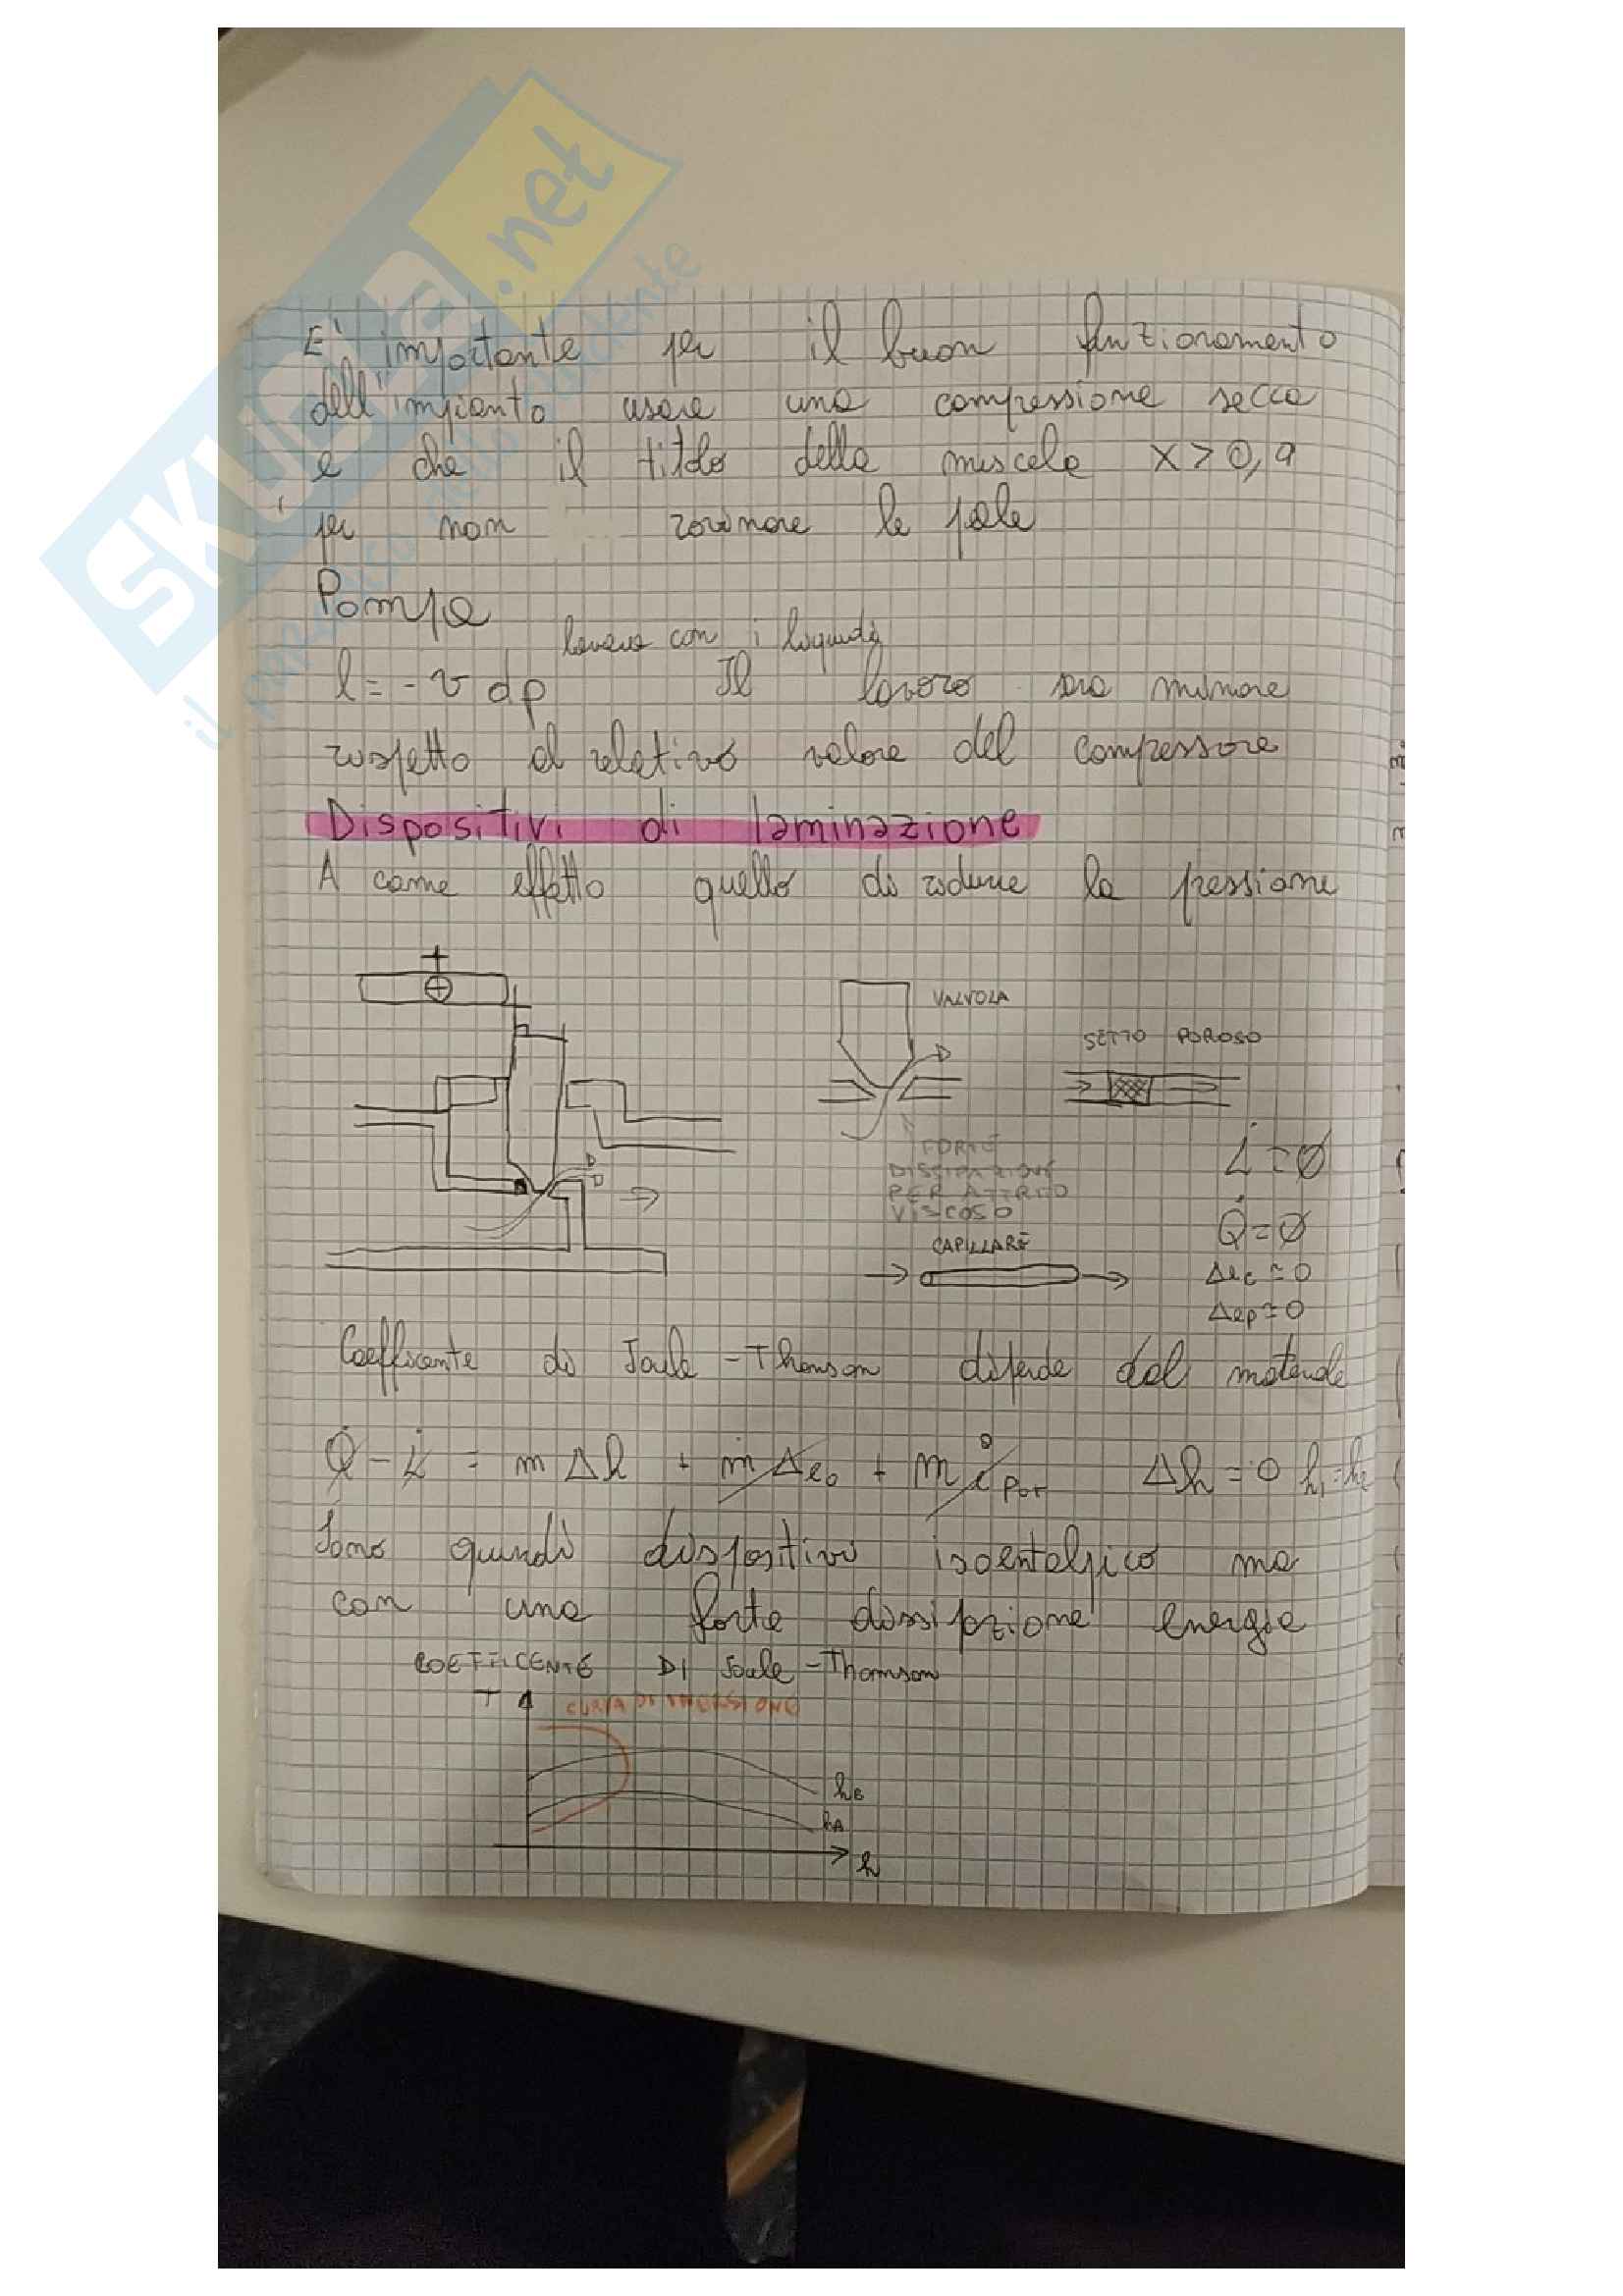 SKUOLA.net
il paradiso dello studente
E' importante per il buon funzionamento
dell'impianto usare una compressione secca
e che il titolo della miscela x > 0,9
per non rovinare le pale
Pompa
lavora con i liquidi
l = - v dp Il lavoro sarà minore
rispetto al relativo valore del compressore
Dispositivi di laminazione
A come effetto quello di ridurre la pressione
VALVOLA
SETTO POROSO
FORTE
DISSIPAZIONE
PER ATTRITO
VISCOSO
CAPILLARE
L̇ = 0
Q̇ = 0
Δec ≈ 0
Δep ≈ 0
Coefficente di Joule - Thomson dipende dal materiale
Q̇ - L̇ = ṁ Δh + ṁ Δec + ṁ epot Δh = 0 h1 = h2
Sono quindi dispositivi isoentalpico ma
con una forte dissipazione energia
COEFFICENTE DI Joule - Thomson
T
CURVA DI INVERSIONE
hB
hA
h